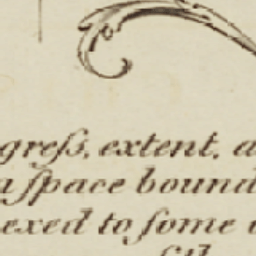 greſs, extent, a
a ſpace bound
exed to ſome